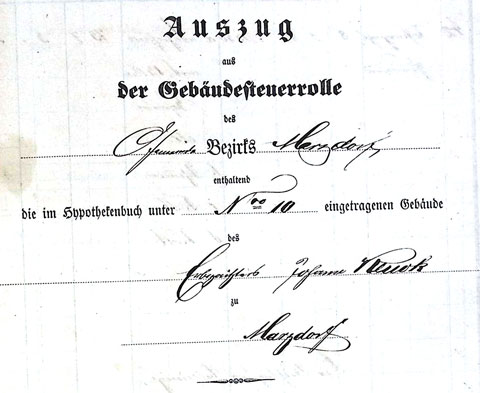 Auszug
aus
der Gebäudesteuerrolle
des
Gemeinde Bezirks Marzdorf
enthaltend
die im Hypothekenbuch unter No 10 eingetragenen Gebäude
des
Erbpächters Johann
zu
Marzdorf